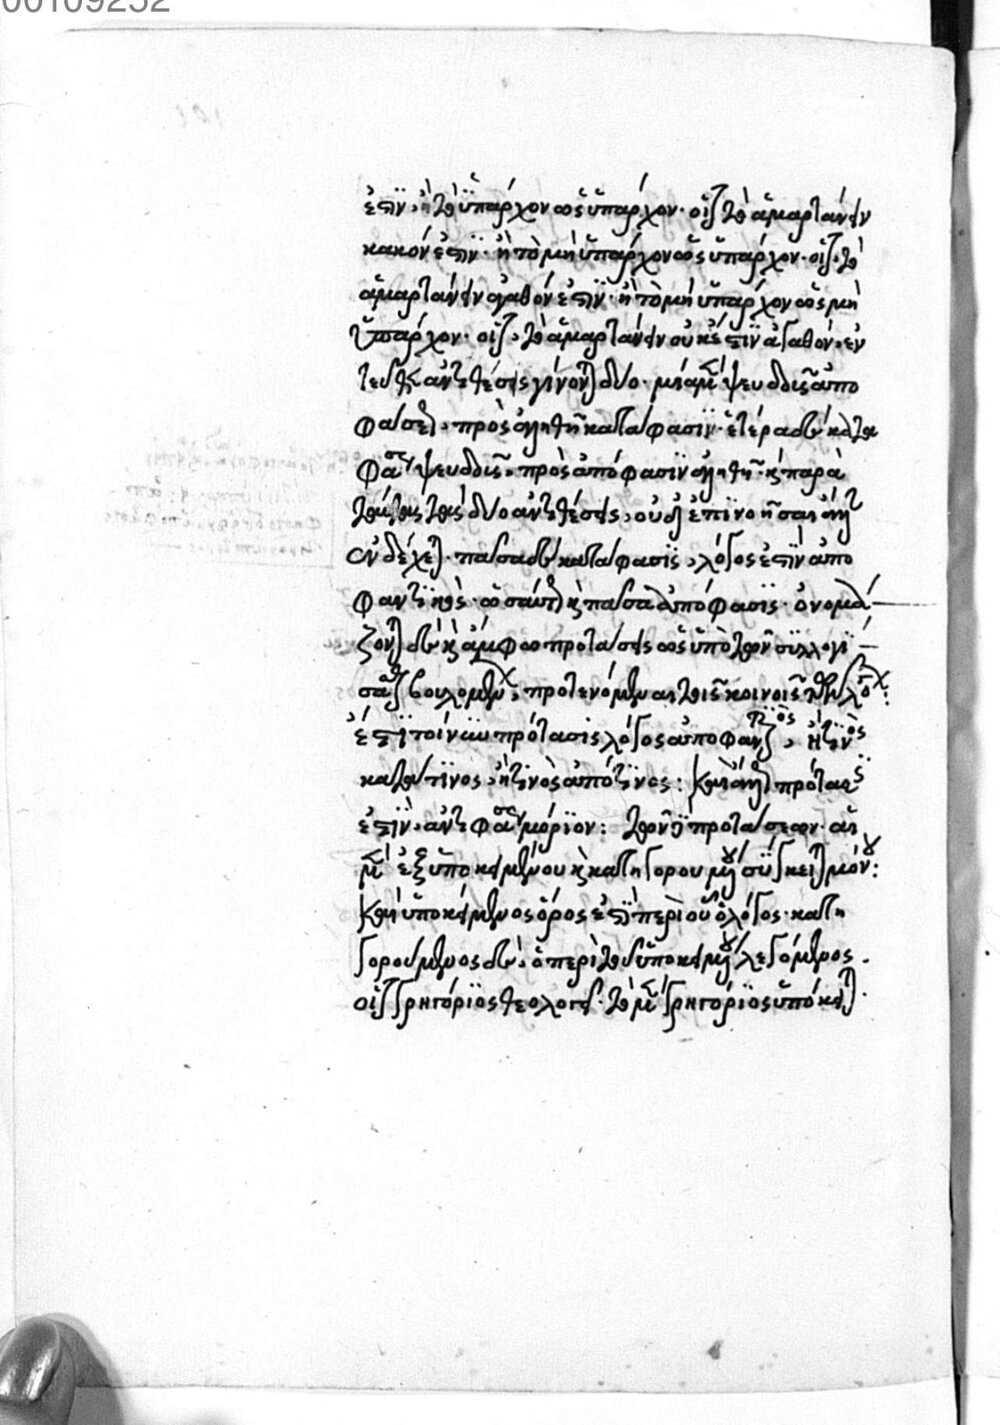 00109252
ἐστὶν, ἢ τὸ ὑπάρχον ὡς ὑπάρχον· οἷον τὸ ἁμαρτάνειν
κακόν ἐστιν· ἢ τὸ μὴ ὑπάρχον ὡς ὑπάρχον· οἷον, τὸ
ἁμαρτάνειν ἀγαθόν ἐστιν· ἢ τὸ μὴ ὑπάρχον ὡς μὴ
ὑπάρχον· οἷον, τὸ ἁμαρτάνειν οὐκ ἔστιν ἀγαθόν· ἐν
τεῦθεν ἀντιθέσεις γίνονται δύο· μία μὲν ψευδὴς ἀπό
φασις, πρὸς ἀληθῆ κατάφασιν· ἑτέρα δὲ κατά
φασις ψευδὴς, πρὸς ἀπόφασιν ἀληθῆ· καὶ παρὰ
ταύτας τὰς δύο ἀντιθέσεις, οὐδὲ ἐπινοῆσαι
ἐνδέχεται· πᾶσα δὲ κατάφασις, λόγος ἐστὶν ἀπο
φαντικός· ὡσαύτως καὶ πᾶσα ἀπόφασις· ὀνομά
ζονται δὲ καὶ ἄμφω προτάσεις ὡς ὑπὸ τῶν συλλογί
σασθαι βουλομένων, προτεινόμεναι τοῖς κοινωνοῖς τῶν λόγων:
ἔστι τοίνυν πρότασις λόγος ἀποφαντικὸς, ἤ τινος
κατά τινος, ἤ τινος ἀπό τινος: καὶ πρότασις
ἐστὶν, ἀντιφάσεως μόριον: τῶν δὲ προτάσεων· αἱ
μὲν ἐξ ὑποκειμένου καὶ κατηγορουμένου σύγκεινται μόνου:
καὶ ὑποκείμενος ὅρος ἐστὶ περὶ οὗ ὁ λόγος· κατη
γορούμενος δὲ, ὁ περὶ τοῦ ὑποκειμένου λεγόμενος.
οἷον Γρηγόριος θεολογεῖ· τὸ μὲν Γρηγόριος ὑπόκειται.